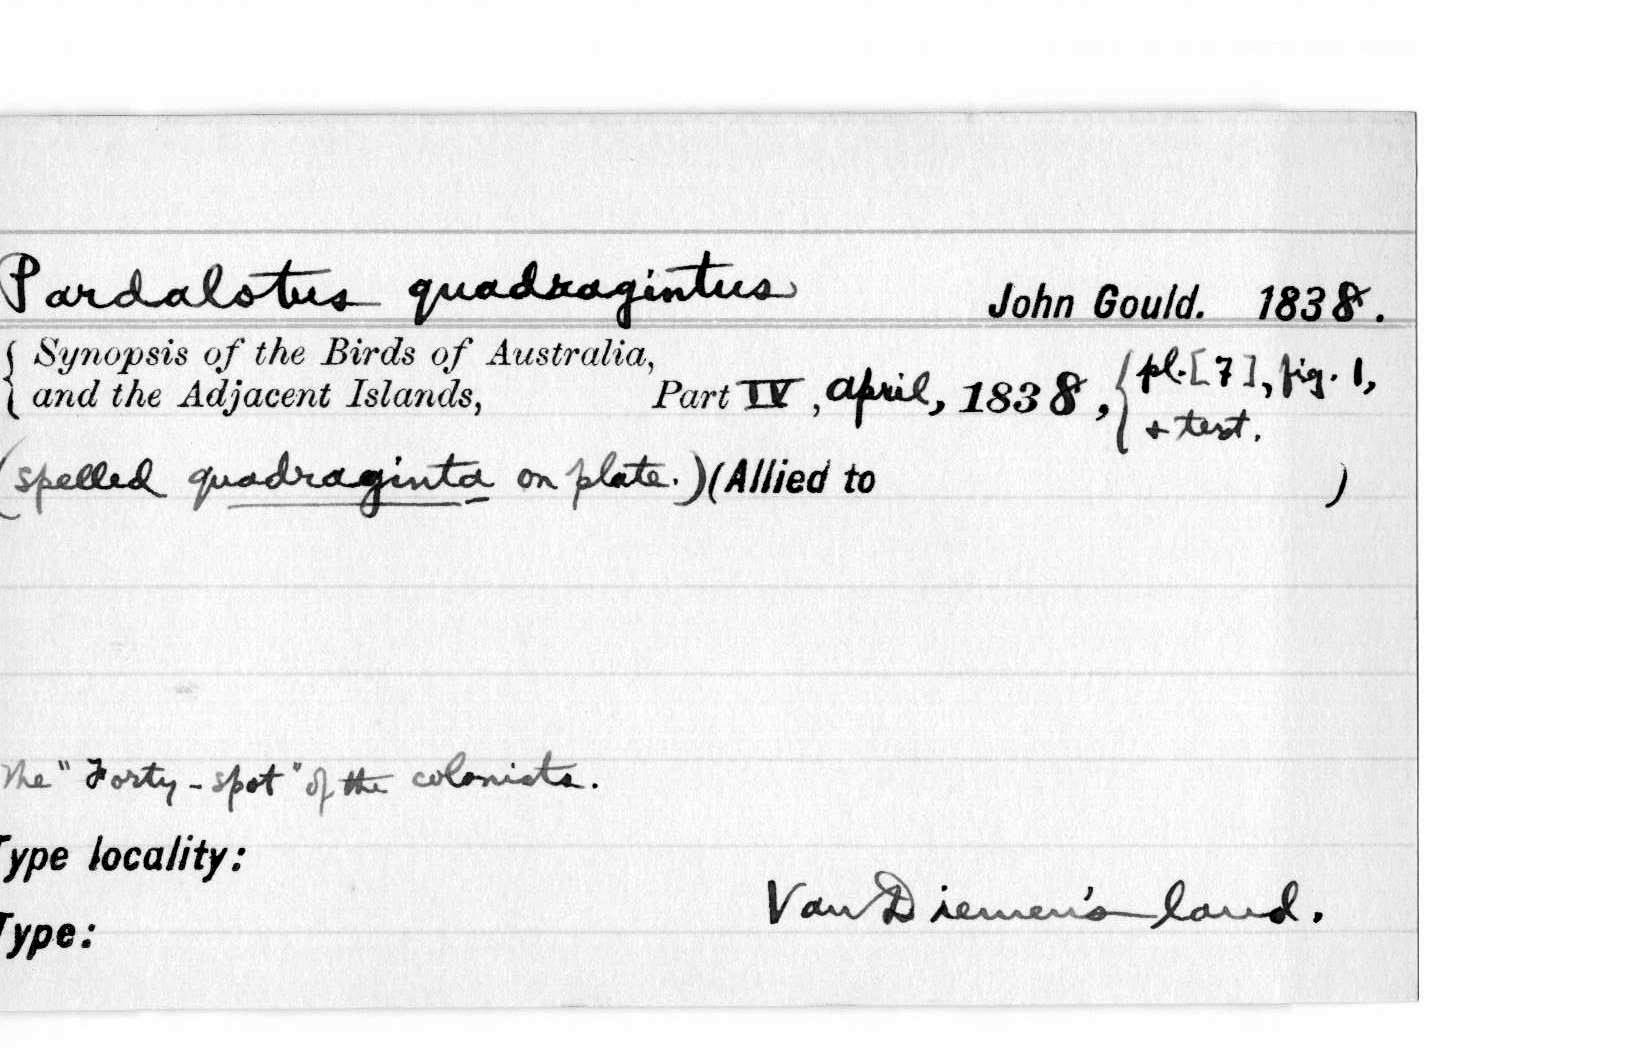 Pardalotus quadragintus John Gould. 1838.
{ Synopsis of the Birds of Australia,
and the Adjacent Islands, Part IV, April, 1838, { pl. [7], fig. 1,
+ text.
(spelled quadraginta on plate.) (Allied to )
The "Forty-spot" of the colonists.
Type locality:
Van Diemen's land.
Type: